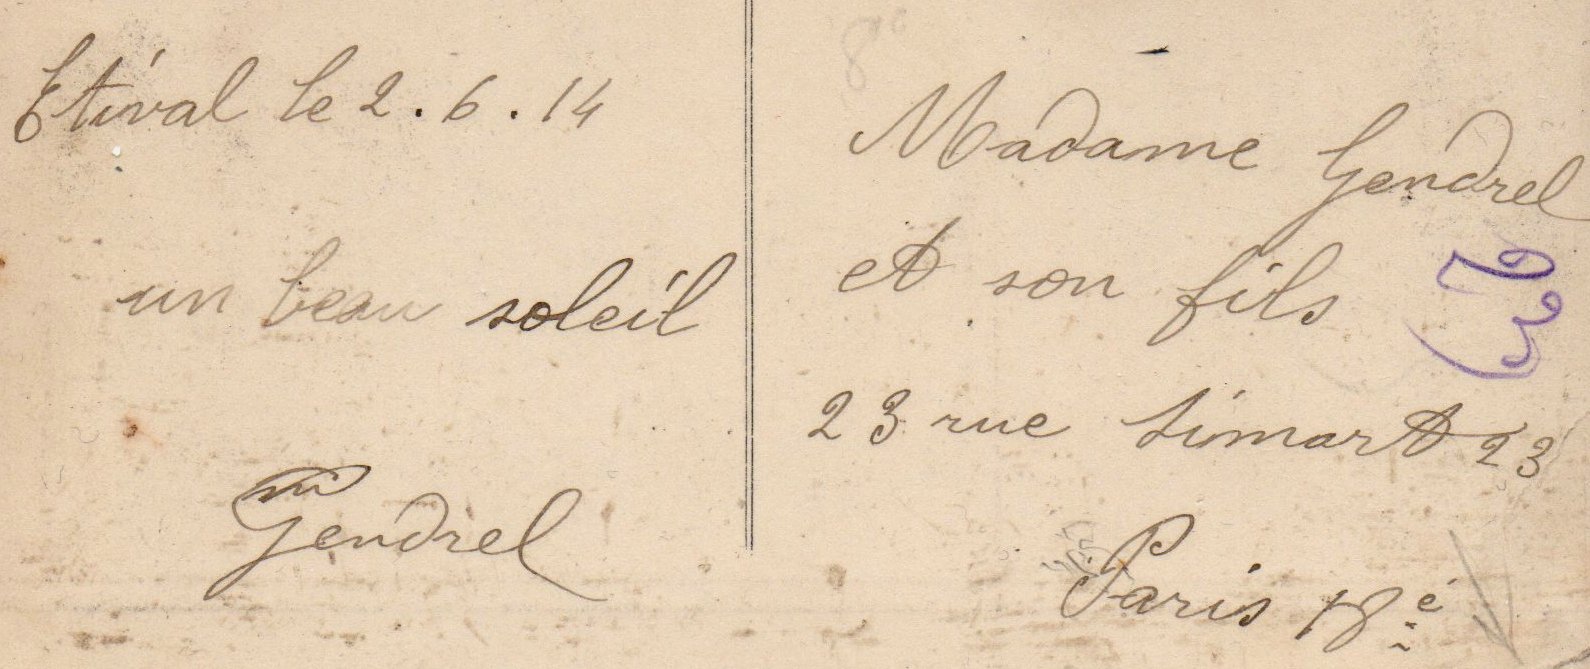 Etival le 2.6.14
un beau soleil
Gendrel
Madame Gendrel
et son fils
23 rue Simart 23
Paris 18é